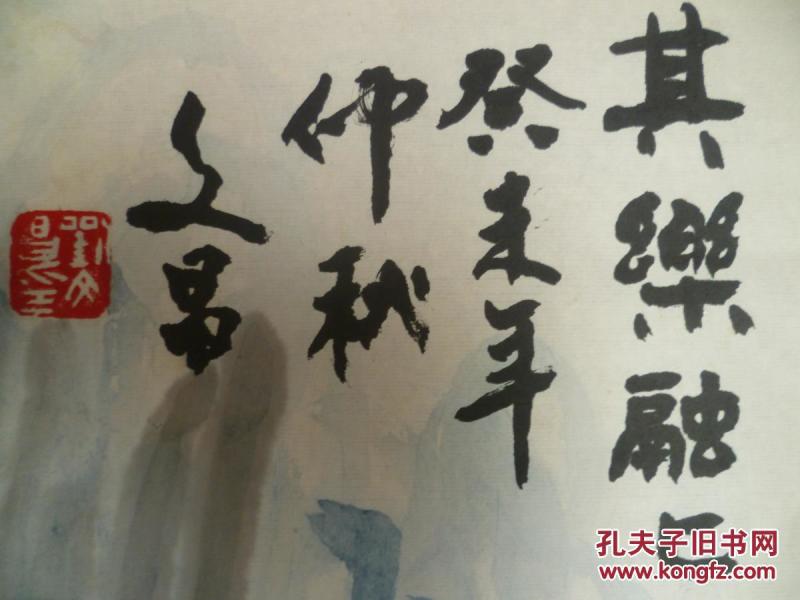 其樂融々
癸未年
仲秋
文昌
孔夫子旧书网
www.kongfz.com